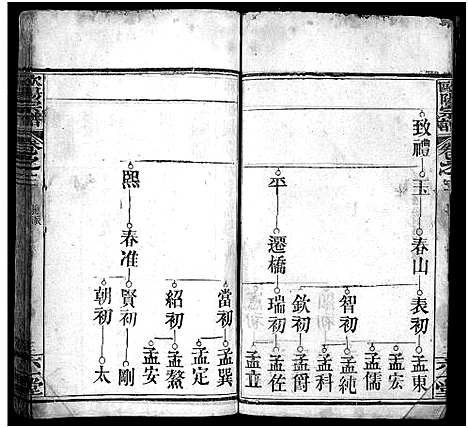 歐陽宗譜
卷之三
六一堂
致禮
玉
春山
表初
孟東
孟宏
孟儒
智初
孟純
孟科
平
遷橋
欽初
孟爵
瑞初
孟佐
孟立
當初
孟巽
孟定
紹初
孟鰲
孟安
熙
春准
賢初
剛
朝初
太
歐陽宗譜
卷之三
六一堂